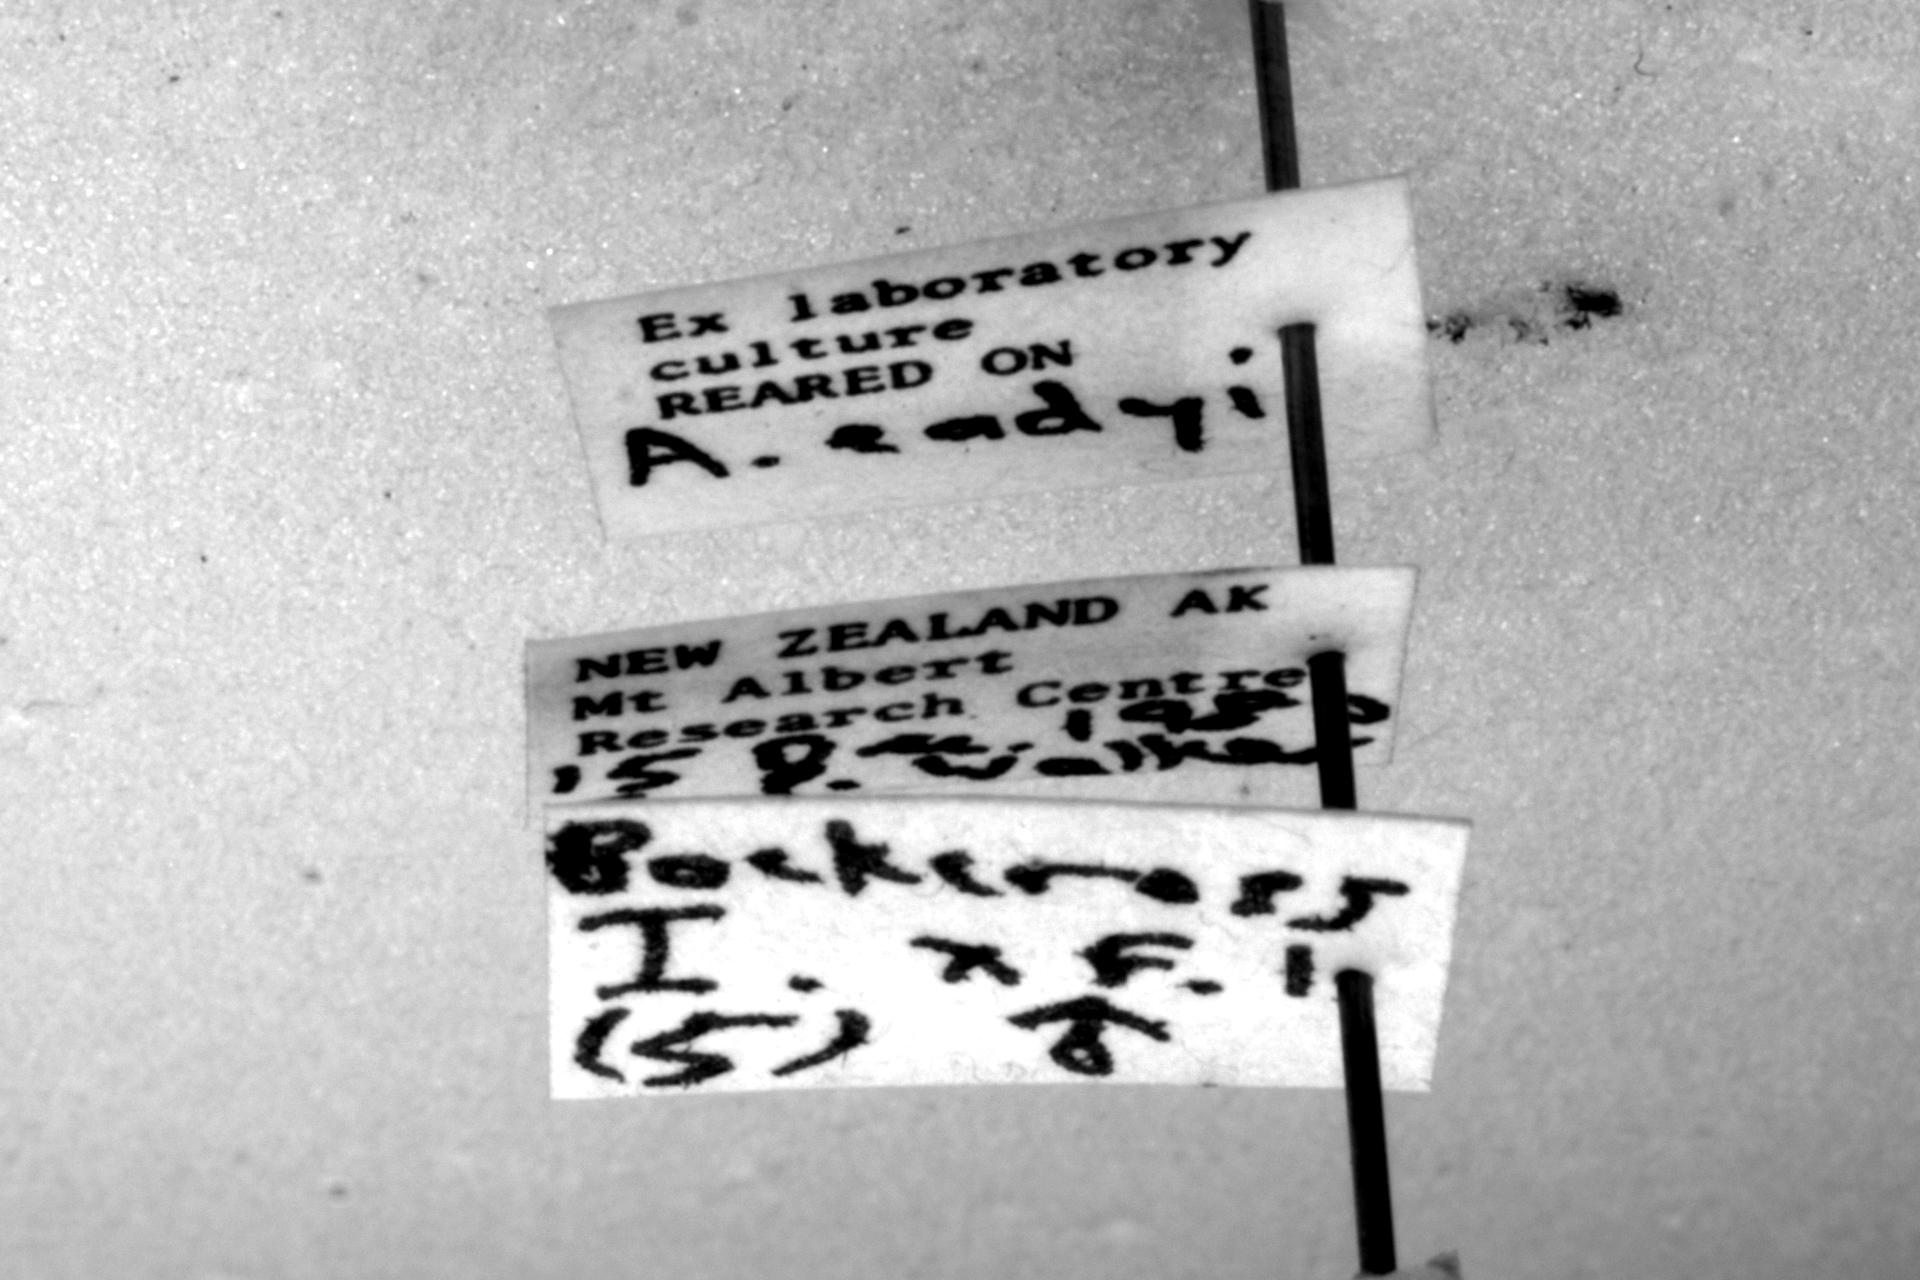 Ex laboratory
culture
REARED ON
A. eadyi
NEW ZEALAND AK
Mt Albert
Research Centre
15 Dec. 1980
P. Walker
Backcross
I. x F. 1
(5)